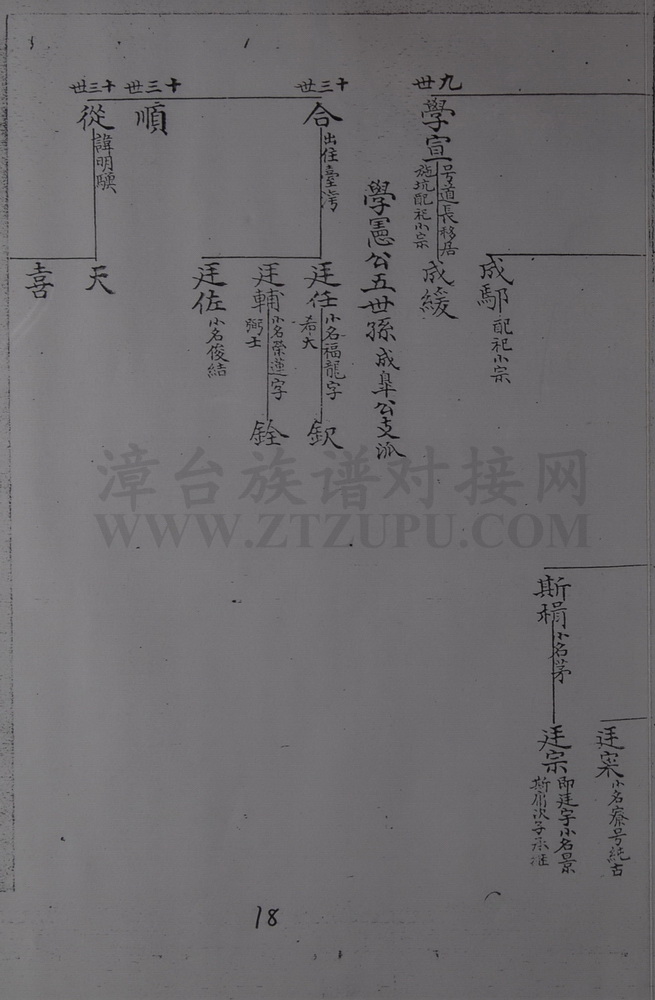 廷寀
小名寮号純古
斯楫
小名茅
廷宗
即廷宇小名景
斯庸次子承继
成鄢
配祀小宗
九世
學宣
号道長移居
施坑配祀小宗
成緩
學憲公五世孫成臯公支派
十三世
合
出住臺灣
廷任
小名福龍字
希大
欽
廷輔
小名榮蓮字
弼士
銓
廷佐
小名俊結
十三世
順
十三世
從
諱明
天
喜
漳台族谱对接网
WWW.ZTZUPU.COM
18